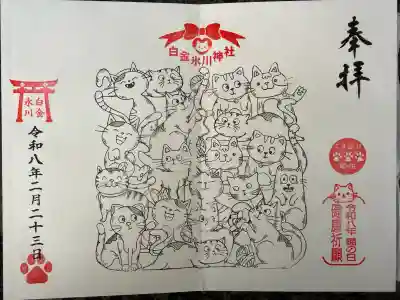 奉拝
白金氷川神社
令和八年 猫の日
健康祈願
白金
氷川
令和八年二月二十三日